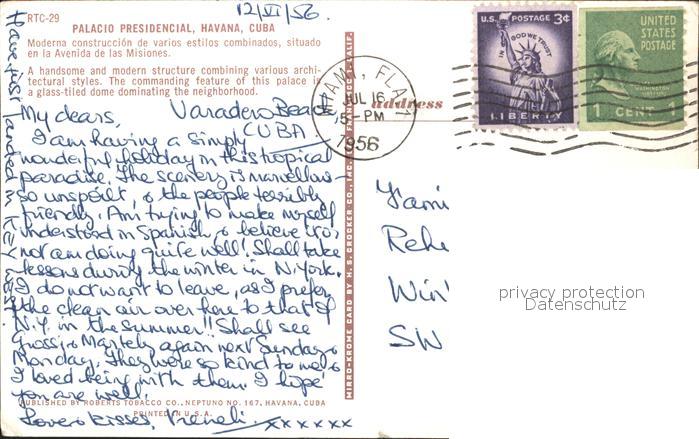 12/VI/56.
RTC-29
PALACIO PRESIDENCIAL, HAVANA, CUBA
Moderna construcción de varios estilos combinados, situado
en la Avenida de las Misiones.
A handsome and modern structure combining various archi-
tectural styles. The commanding feature of this palace is
a glass-tiled dome dominating the neighborhood.
My dears, Varadero Beach
CUBA
I am having a simply
wonderful holiday in this tropical
paradise. The scenery is marvellous
so unspoilt, & the people terribly
friendly. Am trying to make myself
understood in Spanish & believe
not am doing quite well! Shall take
lessons during the winter in N.York.
I do not want to leave, as I prefer
the clean air over here to that of
N.Y. in the summer!! Shall see
again next Sunday &
Monday. They were so kind to me &
I loved being with them. I hope
you are well.
PUBLISHED BY ROBERTS TOBACCO CO., NEPTUNO NO. 167, HAVANA, CUBA
PRINTED IN U.S.A.
Love & kisses, Vreneli xxxxxx
Have just landed in Key West
MIRRO-KROME CARD BY H. S. CROCKER CO., INC.
MIAMI, FLA.
JUL 16
5-PM
1956
address
U.S. POSTAGE 3¢
IN GOD WE TRUST
LIBERTY
UNITED
STATES
POSTAGE
WASHINGTON
1 CENT 1
Fami
Win
SW
privacy protection
Datenschutz